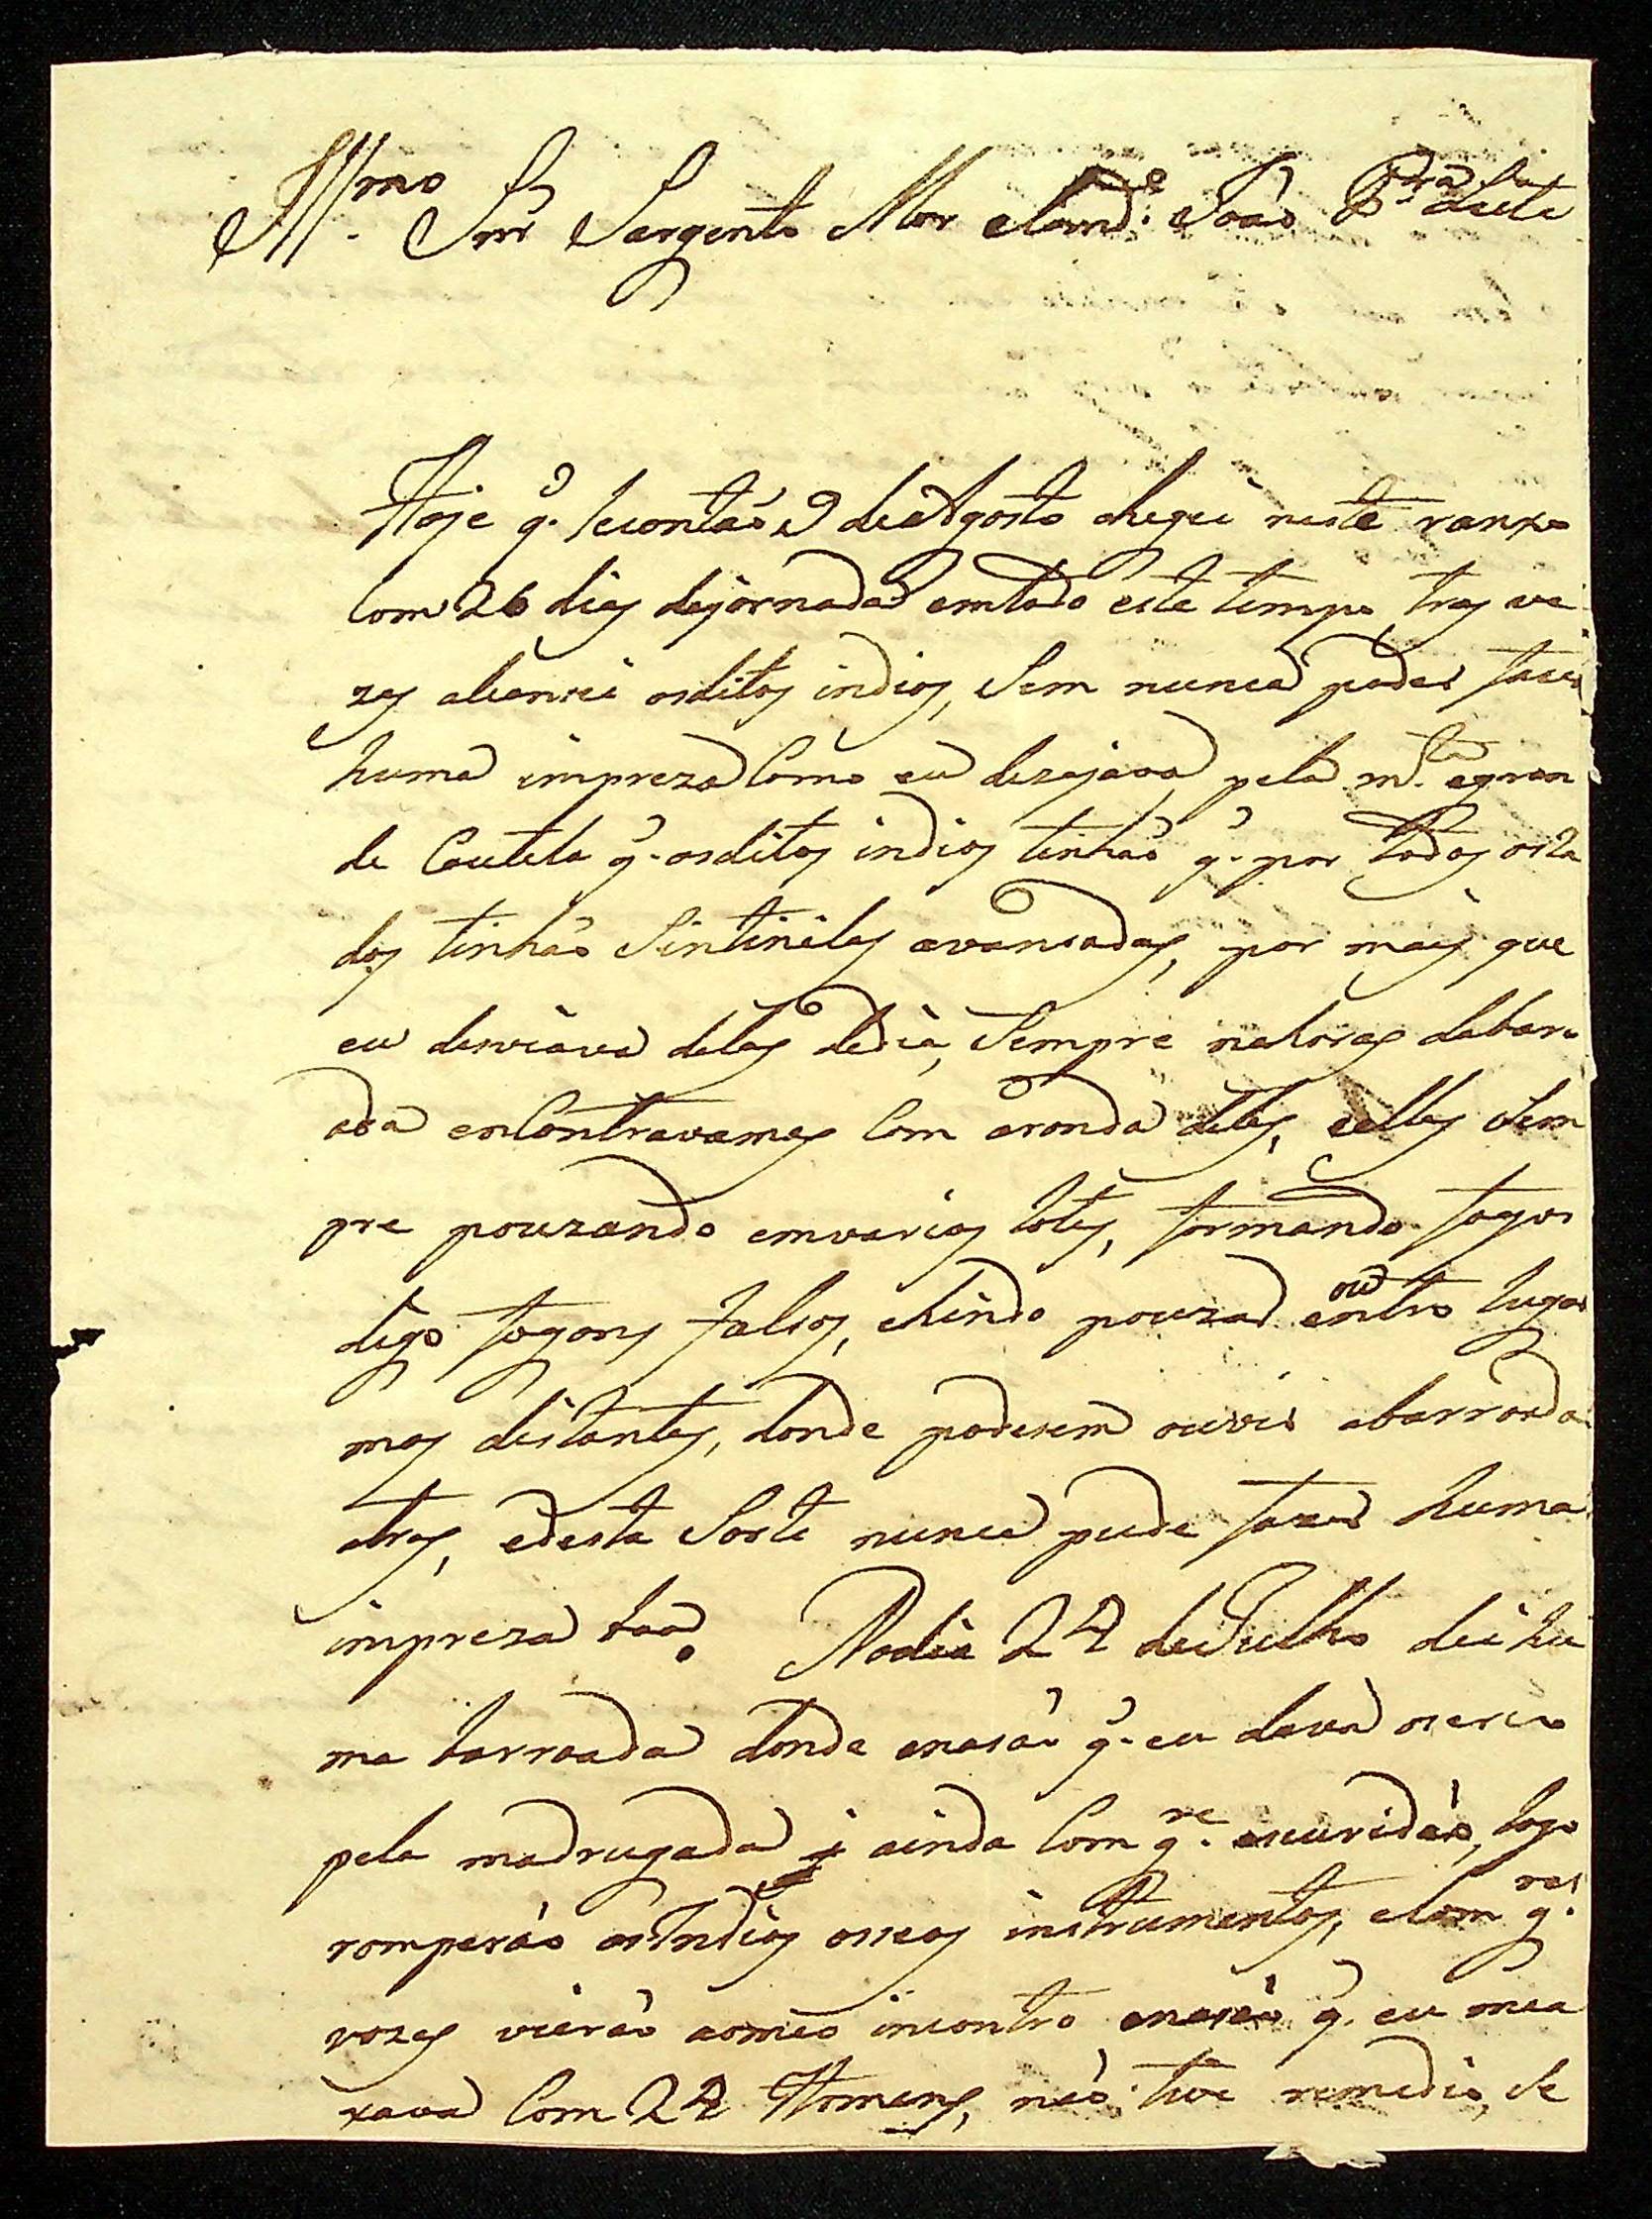 Illmo Snr Sargento Mor Comde João Pra Leite
Hoje q. secontão 9 deAgosto cheguei neste ranxo
Com 26 dias dejornada emtodo este tempo, tres ve
zes alcansei osditos indios, Sem nunca poder fazer
huma impreza Como eu dezejava, pela mta egran
de Cautela q. osditos indios tinhão q. por todos osla
dos tinhão Sintinelas avansadas, por mais que
eu desviava delas dedia, Sempre nahoras dabar
oada enContravamos Com aronda deles, eelles Sem
pre pouzando emvarios lotes, formando fogos
digo fogons falsos, ehindo pouzar em outro lugar
mas distantes, donde podesem ouvir abarroada
atras, edesta Sorte nunca pude fazer huma
impreza boa. Nodia 24 deJulho dei hu
ma barroada donde q. eu dava oserco
pela madrugada ainda Com gre escuridão, logo
romperão osIndios osseos instrumentos, eCom gres
vozes vierão aomeo incontro q. eu mea
xava Com 24 Homens, não tive remedio, Se